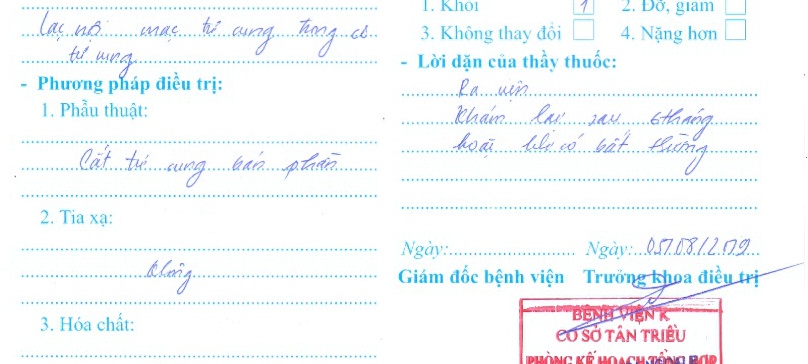 lạc nội mạc tử cung trong cơ
tử cung
- Phương pháp điều trị:
1. Phẫu thuật:
Cắt tử cung bán phần
2. Tia xạ:
không
3. Hóa chất:
1. Khỏi 1 2. Đỡ, giảm
3. Không thay đổi 4. Nặng hơn
- Lời dặn của thầy thuốc:
Ra viện
Khám lại sau 6 tháng
hoặc khi có bất thường
Ngày: Ngày: 05/08/2019
Giám đốc bệnh viện Trưởng khoa điều trị
BỆNH VIỆN K
CƠ SỞ TÂN TRIỀU
PHÒNG KẾ HOẠCH TỔNG HỢP